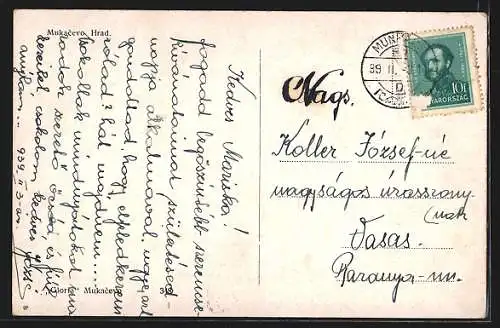 Mukačevo Hrad.
Kedves Mariska!
fogadd legőszintébb szerencse-
kívánataimat születésed-
napja alkalmával, ugye azt
gondoltad, hogy elfeledkezem
rólad? hál' majdnem...
csókollak mindnyájatokat
szerető öcséd és
csókolom kedves
anyukám... 939. II. 3-án.
Mukačevo
MUN
39 II.
D
10 f
MAGYARORSZÁG
Nags.
Koller József-né
nagyságos úrasszony
(nak
Vasas.
Baranya-m.